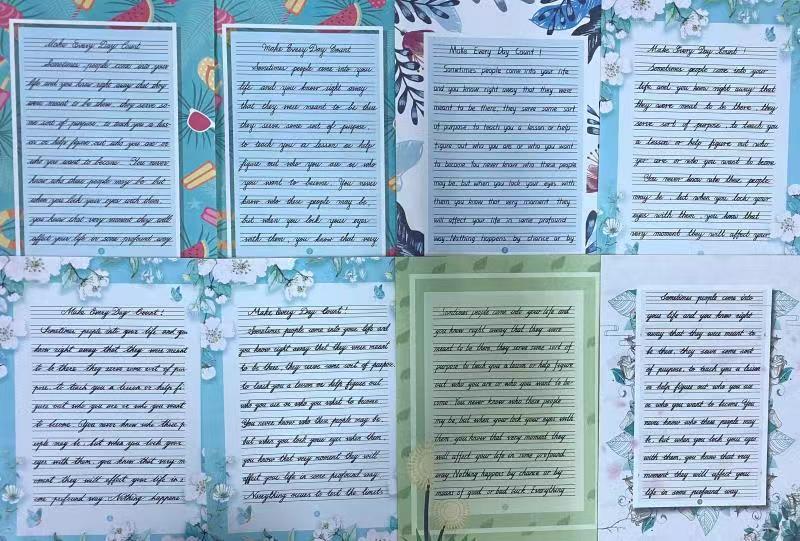 Make Every Day Count
Sometimes people come into your
life and you know right away that they
were meant to be there, they serve so-
me sort of purpose, to teach you a les-
son or help figure out who you are or
who you want to become. You never
know who these people may be but
when you lock your eyes with them,
you know that very moment they will
affect your life in some profound way.
Make Every Day Count
Sometimes people come into you
life and you know right away
that they were meant to be the
they serve some sort of purpose,
to teach you a lesson or help
figure out who you are or who
you want to become. You never
know who these people may be,
but when you lock your eyes
with them, you know that very
Make Every Day Count !
Sometimes people come into your life
and you know right away that they were
meant to be there, they serve some sort
of purpose to teach you a lesson or help
figure out who you are or who you want
to become. You never know who these people
may be, but when you lock your eyes with
them, you know that very moment they
will affect your life in some profound
way. Nothing happens by chance or by
Make Every Day Count !
Sometimes people come into your
life and you know right away that
they were meant to be there, they
serve sort of purpose, to teach you
a lesson or help figure out who
you are or who you want to become
You never know who these people
may be, but when you lock your
eyes with them, you know that
very moment they will affect your
Make Every Day Count !
Sometimes people into your life and you
know right away that they were meant
to be there, they serve some sort of pur
pose, to teach you a lesson or help fi-
gure out who you are or who you want
to become. You never know who these p
eople may be, but when you lock your
eyes with them, you know that very m
oment they will affect your life in s
ome profound way. Nothing happens
Make Every Day Count !
Sometimes people come into your life and
you know right away that they were meant
to be there, they serve some sort of purpose,
to teach you a lesson or help figure out
who you are or who you what to become
You never know who these people may be,
but when you lock your eyes when them,
you know that very moment they will
affect your life in some profound way.
to test the limits
Sometimes people come into your life and
you know right away that they were
meant to be there, they serve some sort of
purpose to teach you a lesson or help figure
out who you are or who you want to be-
come. You never know who these people
may be, but when you lock your eyes with
them, you know that very moment they
will affect your life in some profound
way. Nothing happens by chance or by
means of good or bad luck. Everything
Sometimes people come into
your life and you know right
away that they were meant to
be there, they serve some sort
of purpose, to teach you a lesson
or help figure out who you are
or who you want to become. You
never know who these people may
be, but when you lock your eyes
with them, you know that very
moment they will affect your
life in some profound way.